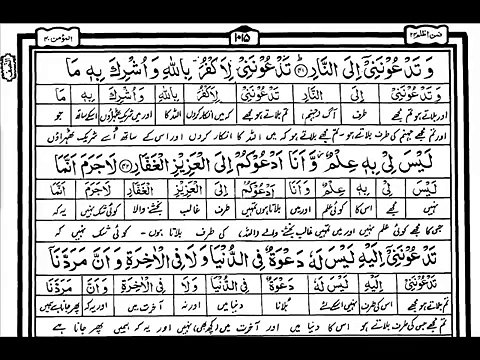 فمن اظلم ٢٤ ١٠١٥ المؤمن ٤٠
وَ تَدْعُوْنَنِیْۤ اِلَی النَّارِ ؕ﴿۴۱﴾ تَدْعُوْنَنِیْ لِاَكْفُرَ بِاللّٰهِ وَ اُشْرِكَ بِهٖ مَا
وَ تَدْعُوْنَنِیْۤ اِلَی النَّارِ تَدْعُوْنَنِیْ لِاَكْفُرَ بِاللّٰهِ وَ اُشْرِكَ بِهٖ مَا
اور بلاتے ہو مجھے طرف آگ (جہنم) تم بلاتے ہو مجھے کہ میں انکار کروں اللہ کا اور میں شریک ٹھہراؤں اسکے ساتھ جو
اور تم مجھے جہنم کی طرف بلاتے ہو تم مجھے بلاتے ہو کہ میں اللہ کا انکار کروں اور اس کے ساتھ اُسے شریک ٹھہراؤں
لَیْسَ لِیْ بِهٖ عِلْمٌ ؗ وَّ اَنَا اَدْعُوْكُمْ اِلَی الْعَزِیْزِ الْغَفَّارِ ﴿۴۲﴾ لَا جَرَمَ اَنَّمَا
لَیْسَ لِیْ بِهٖ عِلْمٌ وَّ اَنَا اَدْعُوْكُمْ اِلَی الْعَزِیْزِ الْغَفَّارِ لَا جَرَمَ اَنَّمَا
نہیں مجھے اس کا کوئی علم اور میں بلاتا ہوں تمہیں طرف غالب بخشنے والا کوئی شک نہیں یہ کہ
جس کا مجھے کوئی علم نہیں، اور میں تمہیں غالب بخشنے والے اللہ، کی طرف بلاتا ہوں۔ کوئی شک نہیں کہ
تَدْعُوْنَنِیْۤ اِلَیْهِ لَیْسَ لَهٗ دَعْوَةٌ فِی الدُّنْیَا وَ لَا فِی الْاٰخِرَةِ وَ اَنَّ مَرَدَّنَاۤ
تَدْعُوْنَنِیْۤ اِلَیْهِ لَیْسَ لَهٗ دَعْوَةٌ فِی الدُّنْیَا وَ لَا فِی الْاٰخِرَةِ وَ اَنَّ مَرَدَّنَاۤ
تم بلاتے ہو مجھے اس کی طرف نہیں اسکے لئے بُلانا دنیا میں اور نہ آخرت میں اور یہ کہ پھر جانا ہے ہمیں
تم مجھے جس کی طرف بلاتے ہو اس کا دنیا میں اور آخرت میں نہیں اور یہ کہ ہمیں پھر جانا ہے